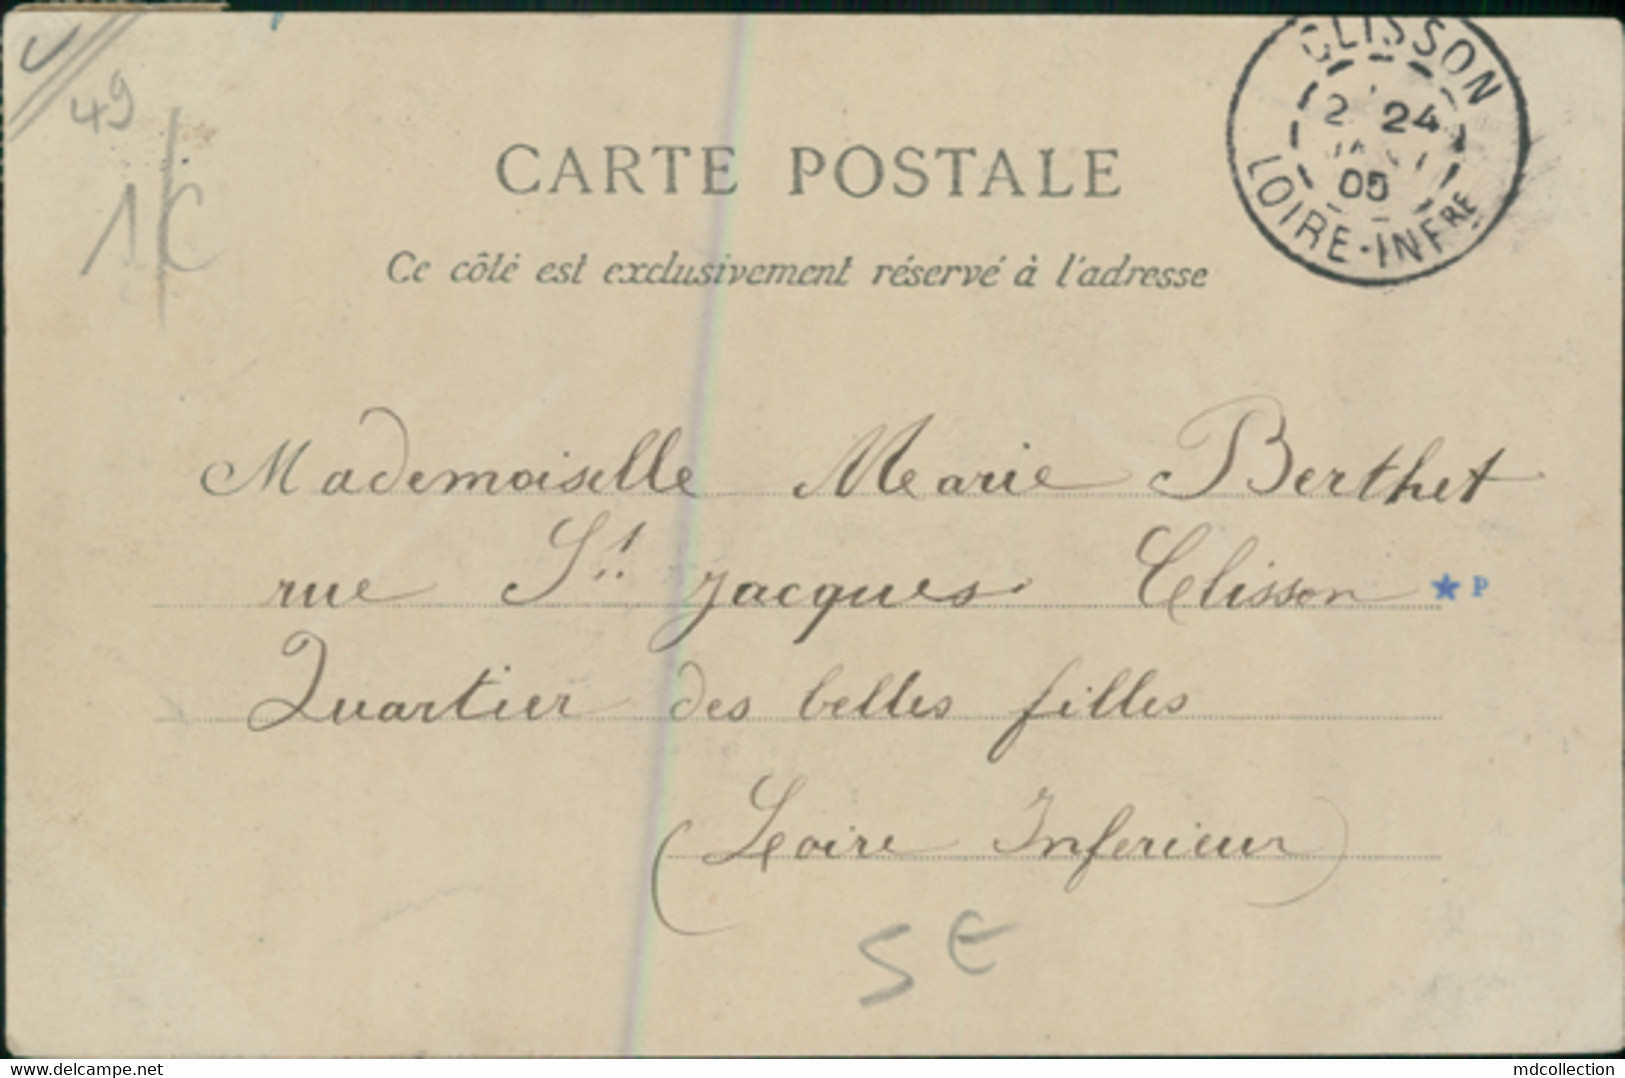 CLISSON
2 24
05
LOIRE-INFRE
49
1 C
CARTE POSTALE
Ce côté est exclusivement réservé à l'adresse
Mademoiselle Marie Berthet
rue St. Jacques Clisson ★ P
Quartier des belles filles
(Loire Inferieur)
5 €
www.delcampe.net
mdcollection